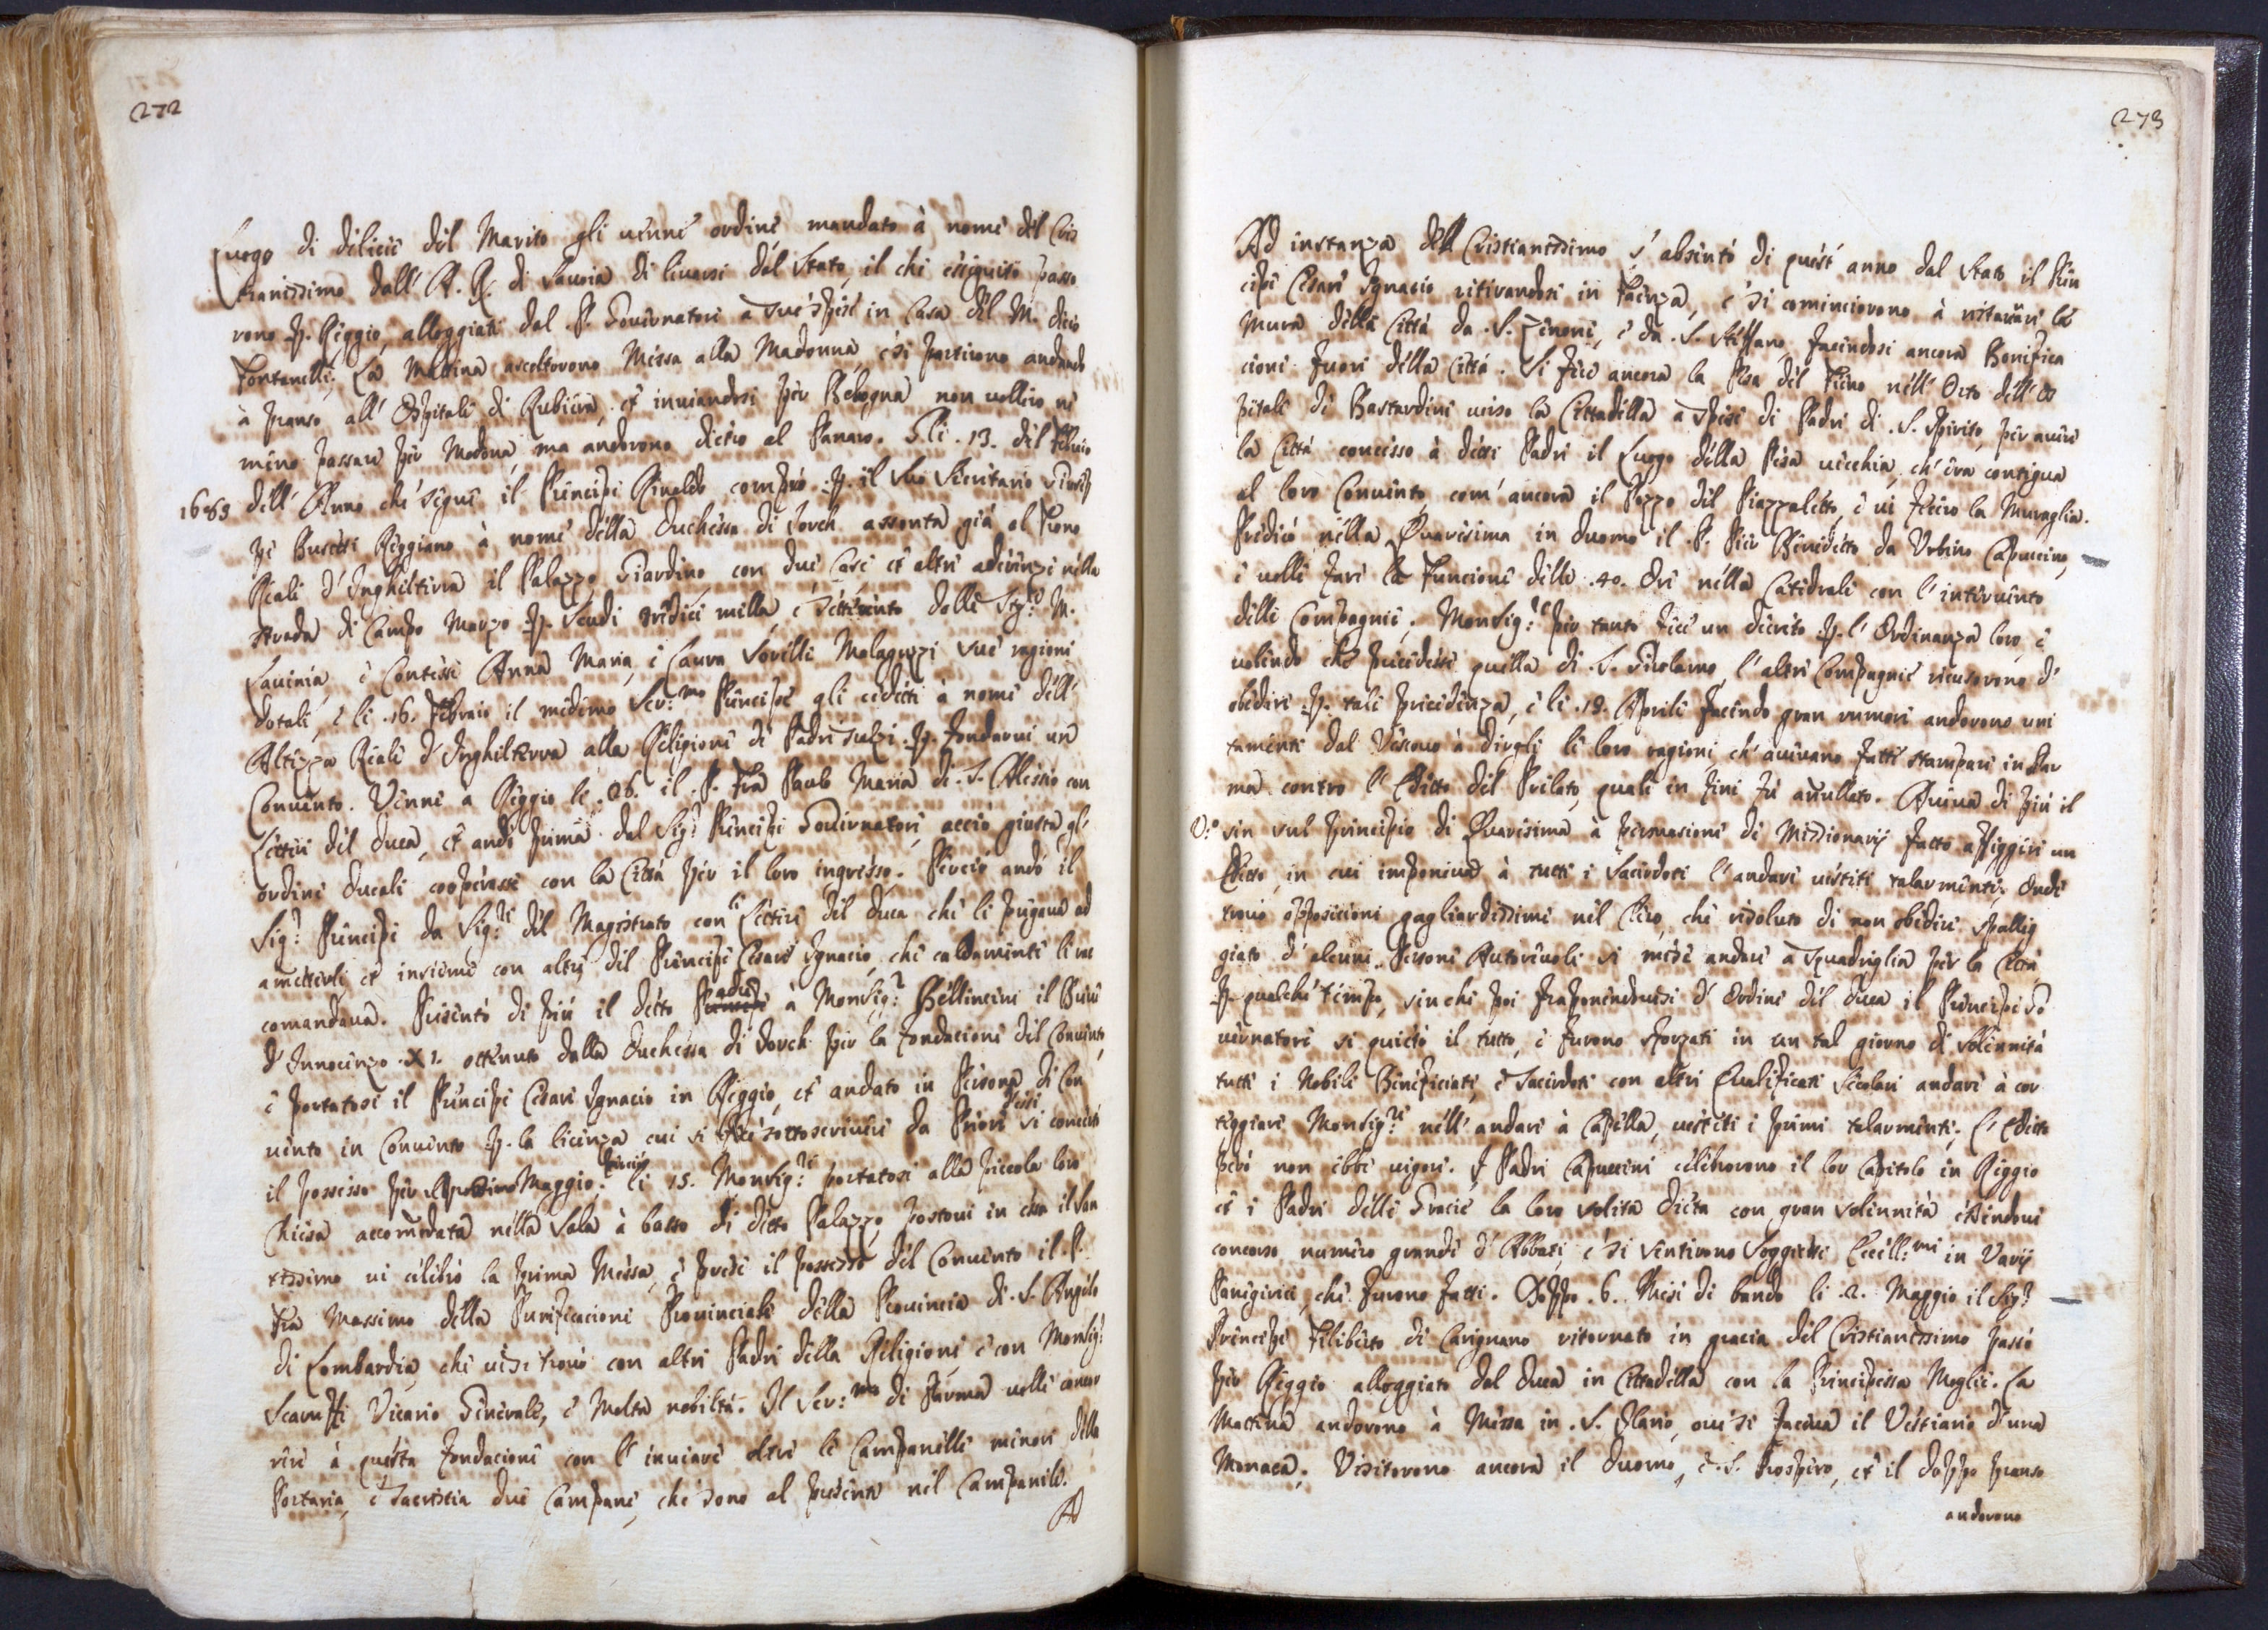 272
Luogo di delicie del Marito gli uenne ordine mandato à nome del Cris
tianissimo dall' A. R. di Sauoia di leuarsi dal Stato, il che esseguito passo
rono p. Reggio, alloggiati dal P. Gouernatore a sue spese in Casa del M. Decio
Fontanelli; La Mattina ascoltorono Messa alla Madonna e si partirono andando
à pranso all' Ospitale di Rubiera, et inuiandosi per Bologna non uollero ne
meno passare per Modona, ma andorono dietro al Panaro. Gli .13. del Febraio
1685 dell' Anno che seguì il Prencipe Rinaldo comprò p. il suo Secretario Giusep
pe Busetti Reggiano à nome della Duchessa di Jorch assonta già al Trono
Reale d' Inghilterra il Palazzo, Giardino con due Case et altre aderenze nella
strada di Campo Marzo p. Scudi tredici milla, e settecento dalle Sig.re M.
Lauinia, e Contesse Anna Maria, e Laura Sorelle Malaguzzi sue ragioni
dotali, e li .16. Febraio il medemo Ser.mo Prencipe gli cedette à nome dell'
Altezza Reale d' Inghilterra alla Religione de Padri Scalzi p. fondarui un
Conuento. Venne à Reggio li .26. il P. Fra Paolo Maria di .S. Alessio con
Lettere del Duca, et andò prima dal Sig.r Prencipe Gouernatore, acciò giusta gl'
ordini Ducali cooperasse con la Città per il loro ingresso. Perciò andò il
Sig.r Prencipe da Sig.ri del Magistrato con li Lettere del Duca che li pregaua ad
ametterli et insieme con altre del Prencipe Cesare Ignacio, che caldamente li rac
comandaua. Presentò di più il detto Padre à Monsig.r Bellincini il Breue
d' Innocenzo .XI. ottenuto dalla Duchessa di Jorch per la fondacione del Conuento,
e portatosi il Prencipe Cesare Ignacio in Reggio, et andato in Persona di Con
uento in Conuento p. la licenza cui si fece sottoscriuere da Priori si concesse
il possesso per Maggio, perciò li 15. Monsig.re portatosi alla piccola loro
Chiesa accomodata nella Sala à basso di detto Palazzo, postoui in essa il San
tissimo ui celebrò la prima Messa, e prese il possesso del Conuento il P.
Fra Massimo della Purificacione Prouinciale della Prouincia di .S. Angelo
di Lombardia che ui si trouò con altri Padri della Religione, e con Monsig.r
Scaruffi Vicario Generale, e Molta nobiltà. Il Ser.mo di Parma uolle concor
rere à questa fondacione con l' inuiare oltre le Campanelle minori della
Portaria, e Sacristia due Campane, che sono al presente nel Campanile.
A
273
Ad instanza dell Cristianissimo s' absentò di quest' anno dal Stato il Pren
cipe Cesare Ignacio ritirandosi in Faenza, e si cominciorono à ristaurar la
Mura della Città da .S. Zenone, e da .S. Steffano facendosi ancora Bonifica
cioni fuori della Città. Si fece ancora la Pesa del Fieno nell' Orto dell' Os
pitale de Bastardini uerso la Cittadella a spese de Padri di .S. Spirito, per auere
la Città concesso à detti Padri il Luogo della Pesa uecchia, ch' era contigua
al loro Conuento, com' ancora il Pozzo del Piazzaletto, e ui fecero la Muraglia.
Predicò nella Quaresima in Duomo il P. Pier Benedetto da Vrbino Capuccino,
e uolle fare la Funcione delle .40. Ore nella Catedrale con l' interuento
delle Compagnie. Monsig.re per tanto fece un decreto p. l' Ordinanza loro, e
uolendo che precedesse quella di .S. Girolamo, l' altre Compagnie ricusorono d'
obedire p. tale precedenza, e li .19. Aprile facendo gran rumore andorono uni
tamente dal Vescouo à dirgli le loro ragioni, ch' aueuano fatte stampare in Par
ma contro l' Editto del Prelato, quale in fine fù anullato. Aueua di più il
sin sul principio di Quaresima à persuasione di Missionarij fatto affiggere un
Editto, in cui imponeua à tutti i Sacerdoti l' andare uestiti talarmente; Onde
trouò opposicioni gagliardissime nel Clero, che risoluto di non obedire spalleg
giato d' alcune Persone Autoreuoli si mise andare a squadriglia per la Città
p. qualche tempo, sin che poi fraponendouisi d' Ordine del Duca il Prencipe Go
uernatore si quietò il tutto, e furono sforzati in un tal giorno di Solennità
tutti i Nobili Beneficiati, e Sacerdoti con altri Qualificati Secolari andare à cor
teggiare Monsig.re nell' andare à Capella, uestiti i primi talarmente; L' Editto
però non ebbe uigore. I Padri Capuccini celebrorono il lor Capitolo in Reggio
et i Padri delle Gracie la loro solita Dieta con gran solennità essendoui
concorso numero grande d' Abbati, e si sentirono Soggetti Eccell.mi in Varij
Panegirici, che furono fatti. Doppo .6. Mesi di bando li .2. Maggio il Sig.r
Prencipe Filiberto di Carignano ritornato in gracia del Cristianissimo passò
per Reggio alloggiato dal Duca in Cittadella con la Principessa Moglie. La
Mattina andorono à Messa in .S. Ilario, oue si faceua il Vestiario d' una
Monaca; Visitorono ancora il Duomo, e .S. Prospero, et il doppo pranso
andorono